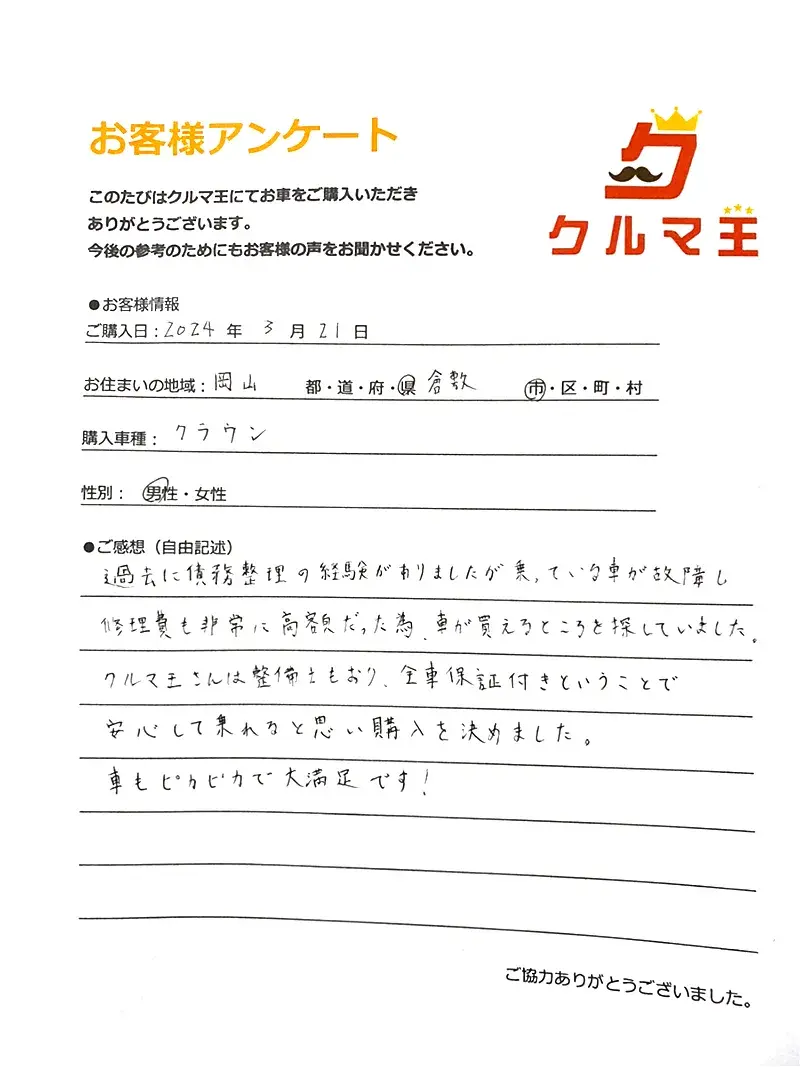 お客様アンケート
このたびはクルマ王にてお車をご購入いただき
ありがとうございます。
今後の参考のためにもお客様の声をお聞かせください。
ク
クルマ王
●お客様情報
ご購入日：2024 年 3 月 21 日
お住まいの地域：岡山 都・道・府・県 倉敷 市・区・町・村
購入車種：クラウン
性別： 男性・女性
●ご感想（自由記述）
過去に債務整理の経験がありましたが乗っている車が故障し
修理費も非常に高額だった為、車が買えるところを探していました。
クルマ王さんは整備士もおり、全車保証付きということで
安心して乗れると思い購入を決めました。
車もピカピカで大満足です!
ご協力ありがとうございました。